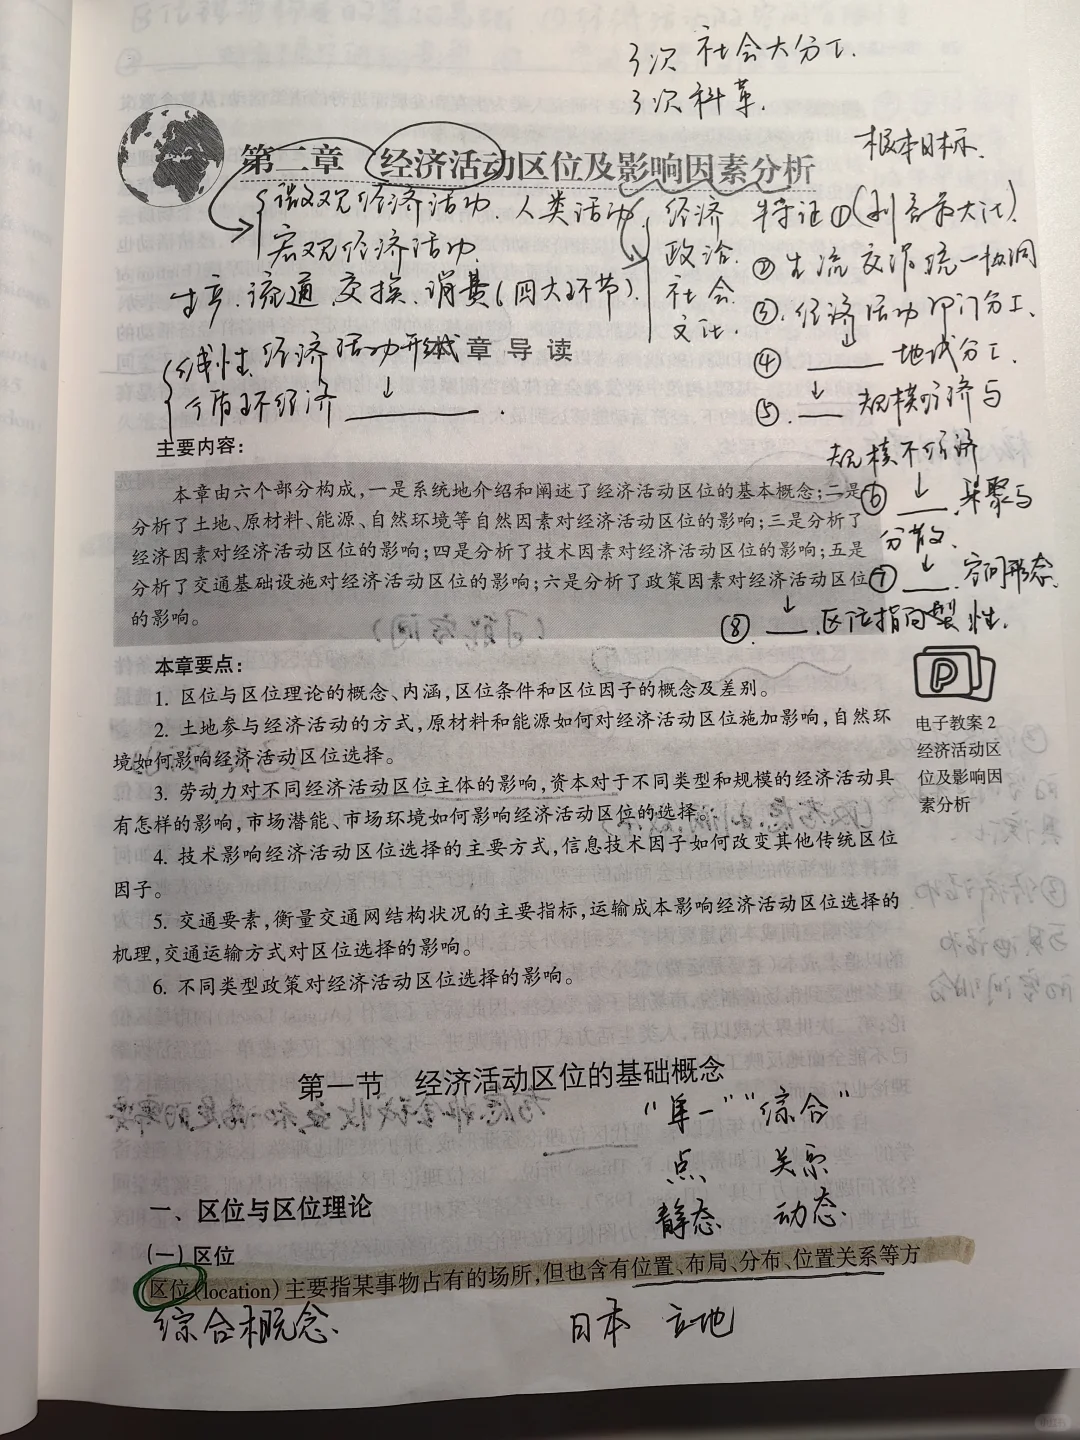 3次 社会大分工.
3次科革.
根本目标.
第二章 经济活动区位及影响因素分析
微观经济活动. 人类活动. 经济 特证①(利益最大化).
宏观经济活动. 政治. ②生流交消统一协同
生产.流通.交换.消费(四大环节). 社会. ③.经济活动部门分工.
文化.
线性经济活动形式 ④ 地域分工.
本章导读
循环经济 ↓ . ⑤. 规模经济与
规模不经济
主要内容:
本章由六个部分构成,一是系统地介绍和阐述了经济活动区位的基本概念;二是
⑥ ↓ 集聚与
分析了土地、原材料、能源、自然环境等自然因素对经济活动区位的影响;三是分析了
分散.
经济因素对经济活动区位的影响;四是分析了技术因素对经济活动区位的影响;五是
分析了交通基础设施对经济活动区位的影响;六是分析了政策因素对经济活动区位
⑦ ↓ 空间形态.
的影响。
⑧. ↓ 区位指向型 性.
本章要点:
1. 区位与区位理论的概念、内涵,区位条件和区位因子的概念及差别。
2. 土地参与经济活动的方式,原材料和能源如何对经济活动区位施加影响,自然环
境如何影响经济活动区位选择。
3. 劳动力对不同经济活动区位主体的影响,资本对于不同类型和规模的经济活动具
有怎样的影响,市场潜能、市场环境如何影响经济活动区位的选择。
4. 技术影响经济活动区位选择的主要方式,信息技术因子如何改变其他传统区位
因子。
5. 交通要素,衡量交通网结构状况的主要指标,运输成本影响经济活动区位选择的
机理,交通运输方式对区位选择的影响。
6. 不同类型政策对经济活动区位选择的影响。
P
电子教案 2
经济活动区
位及影响因
素分析
第一节 经济活动区位的基础概念
“单一”“综合”
点. 关系
静态. 动态.
一、区位与区位理论
(一) 区位
区位(location)主要指某事物占有的场所,但也含有位置、布局、分布、位置关系等方
综合概念. 日本 立地
小红书